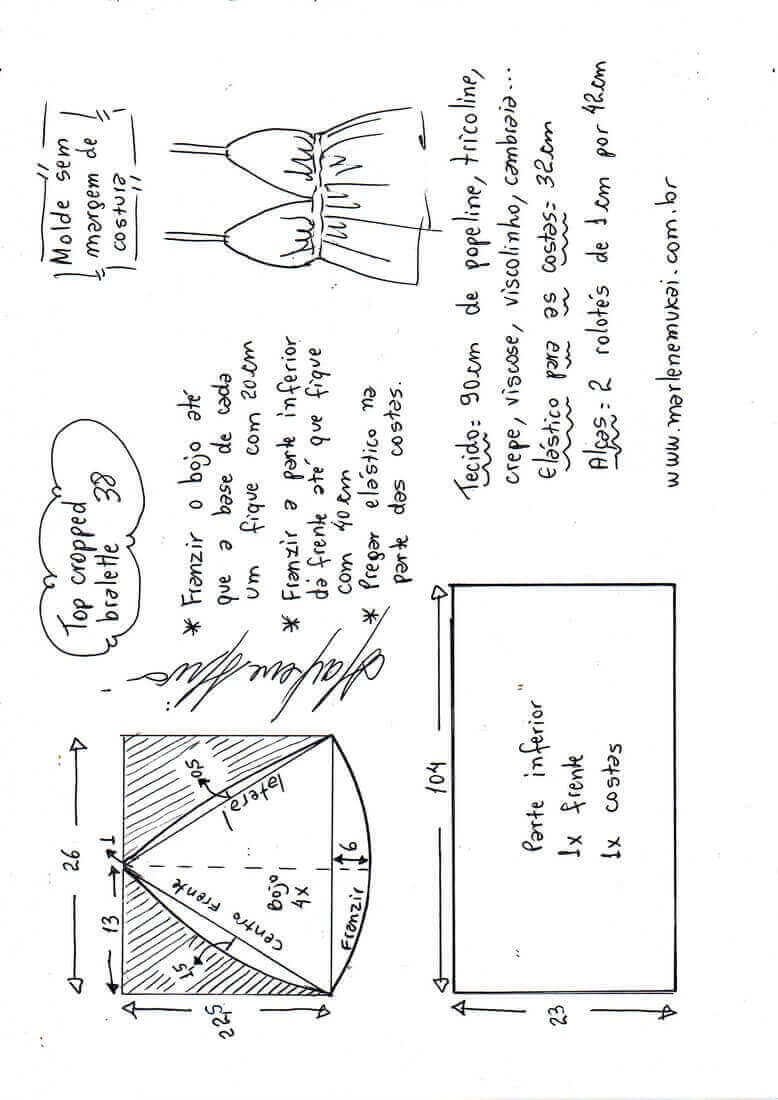 Top cropped
bralette 38
Molde sem
margem de
costura
* Franzir o bojo até
que a base de cada
um fique com 20 cm
* Franzir a parte inferior
da frente até que fique
com 40cm
* Pregar elástico na
parte das costas.
26
13
1
22,5
1,5
0,5
Centro Frente
lateral
Bojo
4x
6
Franzir
104
23
Parte inferior
1x frente
1x costas
Tecido= 90cm de popeline, tricoline,
crepe, viscose, viscolinho, cambraia...
Elástico para as costas= 32cm
Alças= 2 rolotês de 1cm por 42cm
www.marlenemukai.com.br